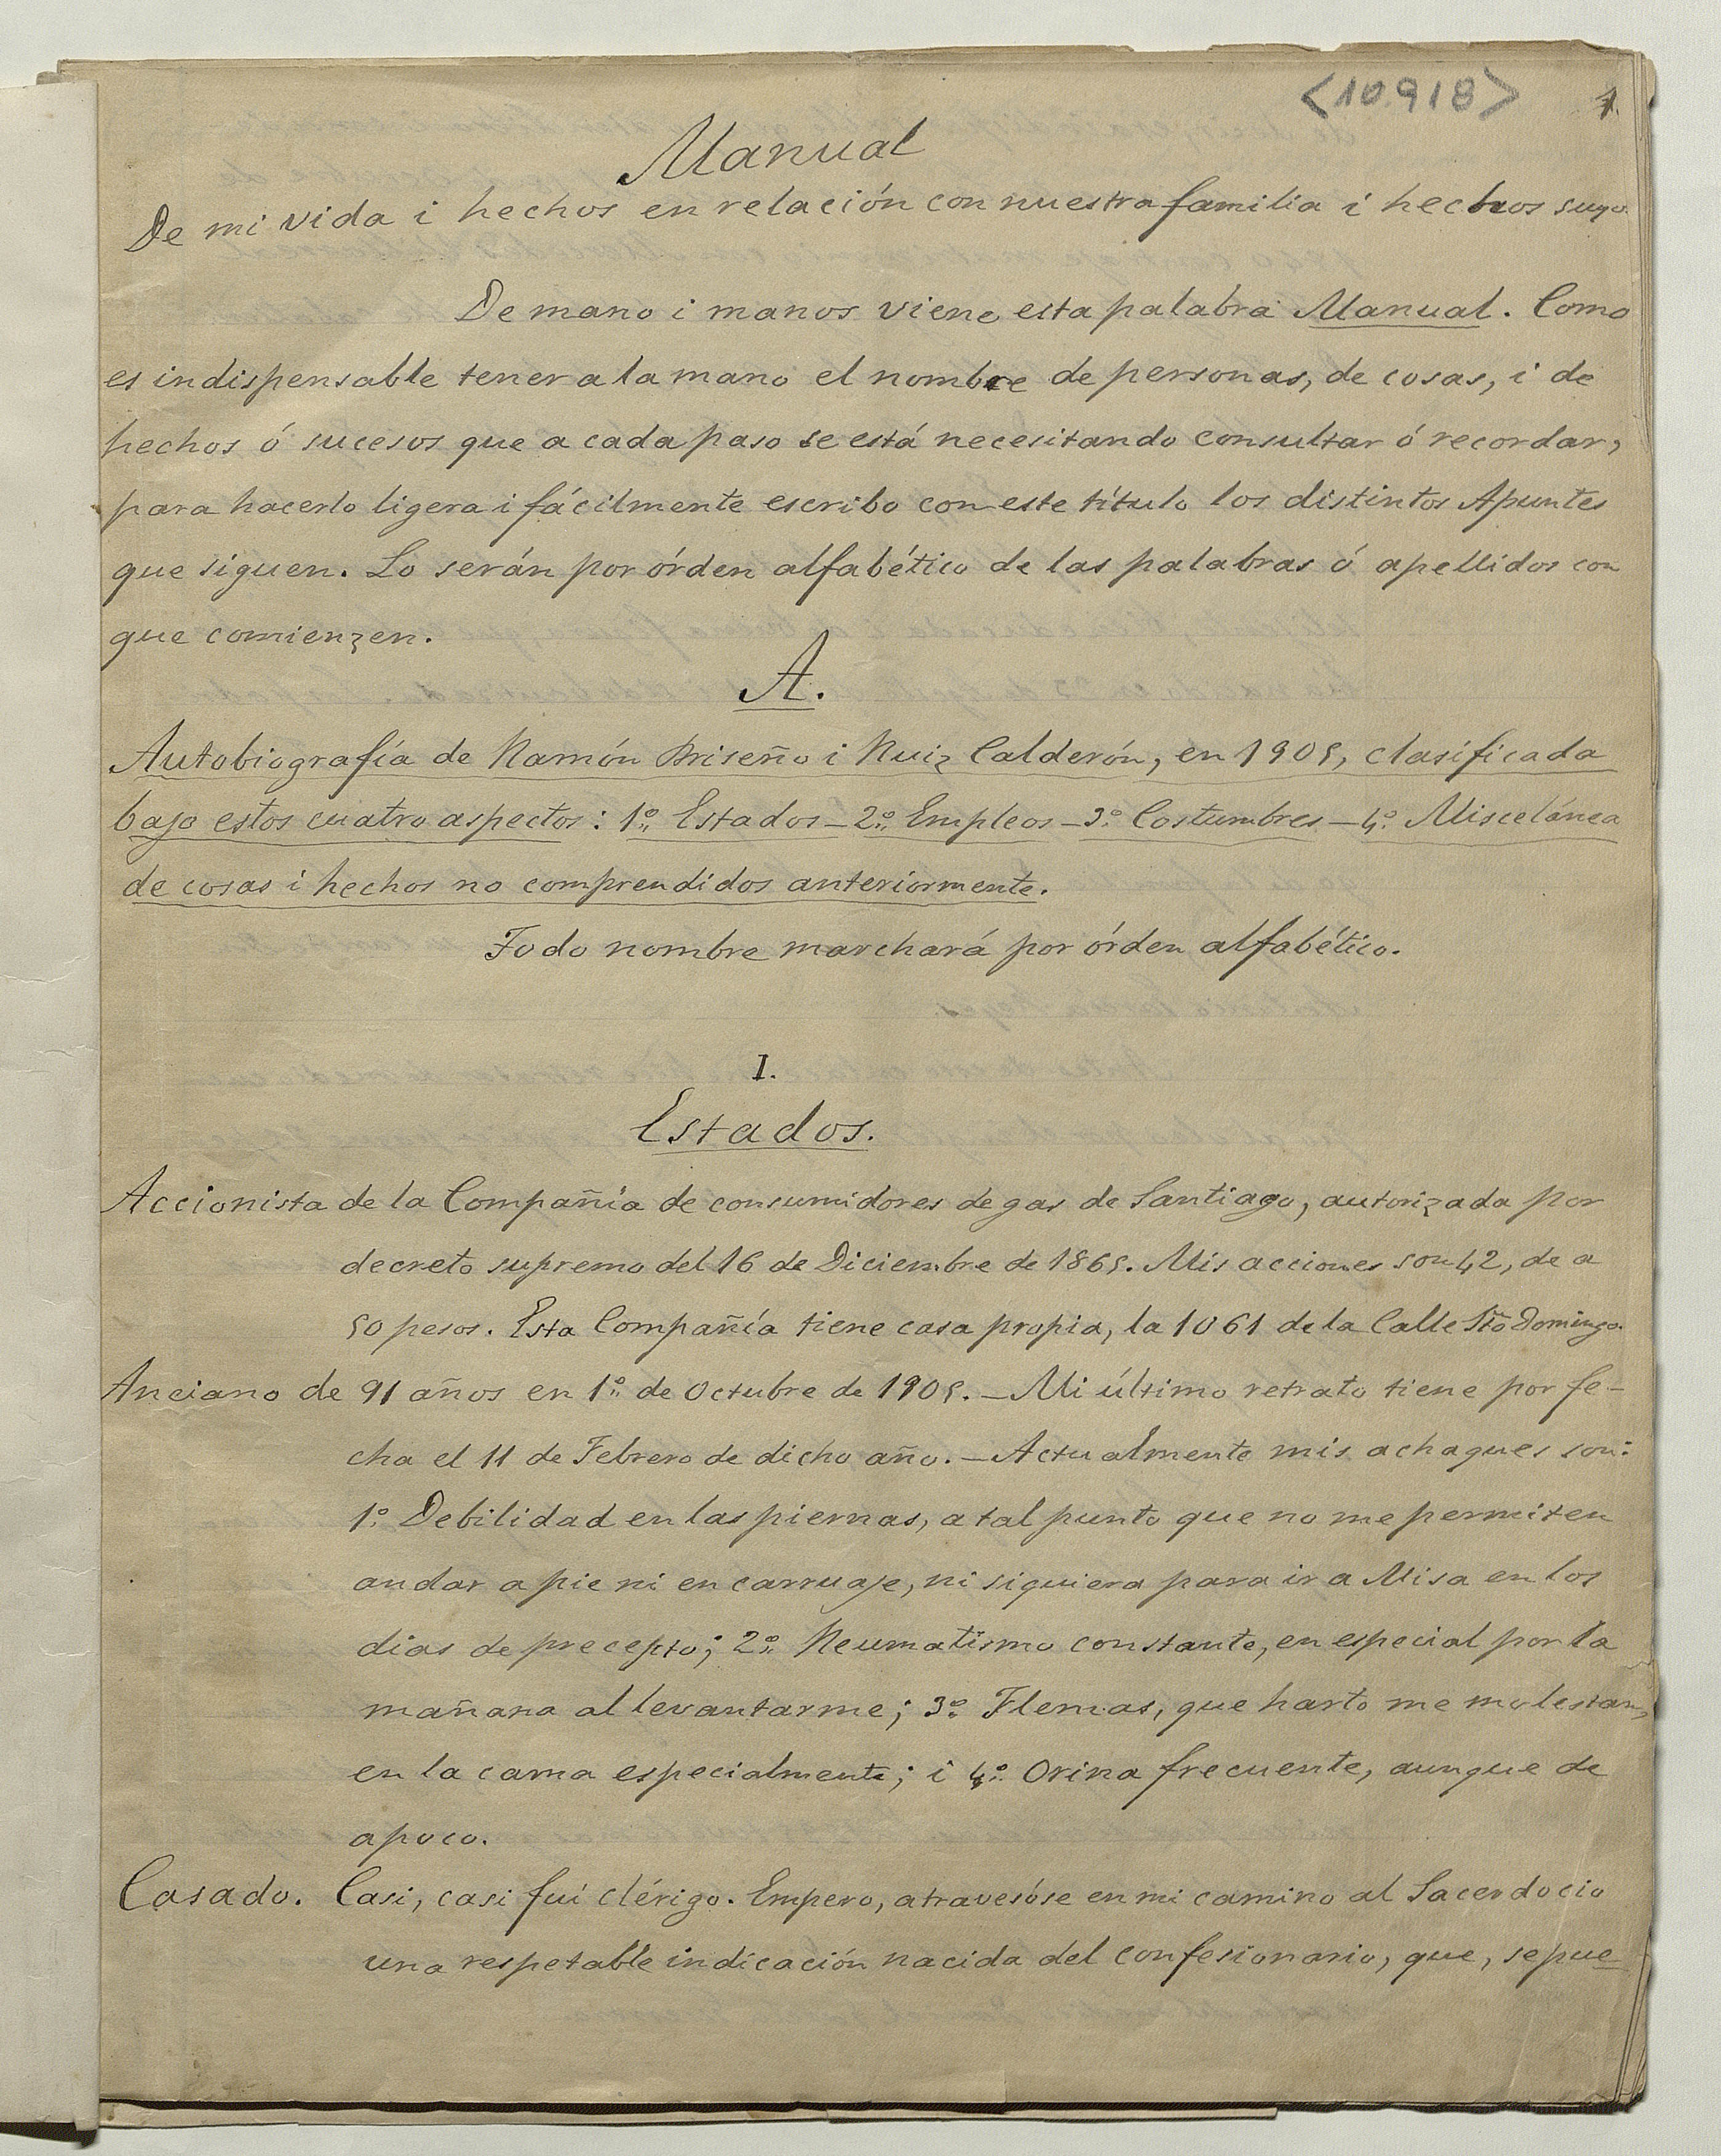 <10918> 1.
Manual
De mi vida i hechos en relación con nuestra familia i hechos suyos.
De mano i manos viene esta palabra Manual. Como
es indispensable tener a la mano el nombre de personas, de cosas, i de
hechos ó sucesos que a cada paso se está necesitando consultar ó recordar,
para hacerlo ligera i fácilmente escribo con este título los distintos Apuntes
que siguen. Lo serán por órden alfabético de las palabras ó apellidos con
que comienzen.
A.
Autobiografía de Ramón Briseño i Ruiz Calderón, en 1905, clasificada
bajo estos cuatro aspectos: 1º Estados – 2º Empleos – 3º Costumbres – 4º Miscelánea
de cosas i hechos no comprendidos anteriormente.
Todo nombre marchará por órden alfabético.
I.
Estados.
Accionista de la Compañía de consumidores de gas de Santiago, autorizada por
decreto supremo del 16 de Diciembre de 1865. Mis acciones son 42, de a
50 pesos. Esta Compañía tiene casa propia, la 1061 de la Calle Stō Domingo.
Anciano de 91 años en 1º de Octubre de 1905. – Mi último retrato tiene por fe-
cha el 11 de Febrero de dicho año. – Actualmente mis achaques son:
1º Debilidad en las piernas, a tal punto que no me permiten
andar a pie ni en carruaje, ni siquiera para ir a Misa en los
dias de precepto; 2º Reumatismo constante, en especial por la
mañana al levantarme; 3º Flemas, que harto me molestan,
en la cama especialmente; i 4º Orina frecuente, aunque de
apoco.
Casado. Casi, casi fuí clérigo. Empero, atravesóse en mi camino al Sacerdocio
una respetable indicación nacida del confesionario, que, se pue